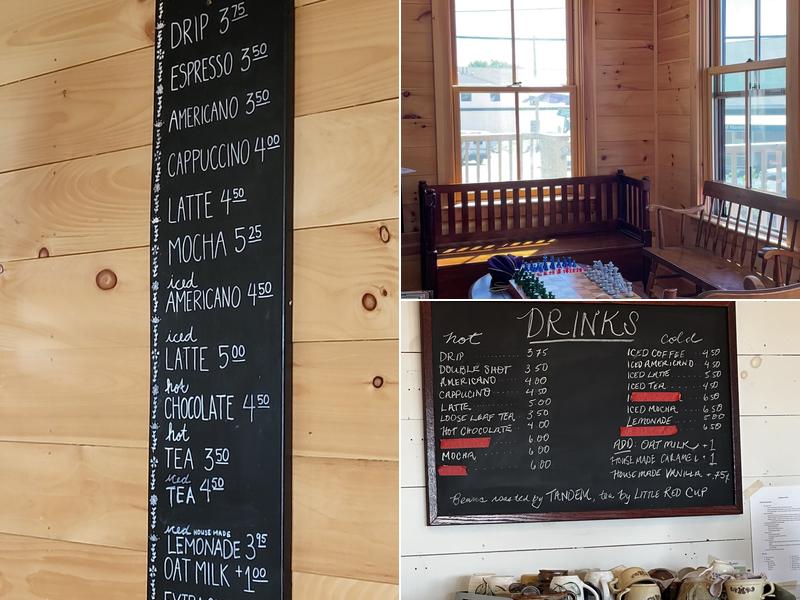 DRIP 3.75
ESPRESSO 3.50
AMERICANO 3.50
CAPPUCCINO 4.00
LATTE 4.50
MOCHA 5.25
iced
AMERICANO 4.50
iced
LATTE 5.00
hot
CHOCOLATE 4.50
hot
TEA 3.50
iced
TEA 4.50
iced HOUSE MADE
LEMONADE 3.95
OAT MILK +1.00
DRINKS
hot
DRIP 3.75
DOUBLE SHOT 3.50
AMERICANO 4.00
CAPPUCINO 4.50
LATTE 5.00
LOOSE LEAF TEA 3.50
HOT CHOCOLATE 4.00
6.00
MOCHA 6.00
6.00
cold
ICED COFFEE 4.50
ICED AMERICANO 4.50
ICED LATTE 5.50
ICED TEA 4.50
6.50
ICED MOCHA 6.50
LEMONADE 5.00
6.50
ADD OAT MILK +1
HOUSEMADE CARAMEL +1
HOUSEMADE VANILLA +.75
Beans roasted by TANDEM, tea by LITTLE RED CUP